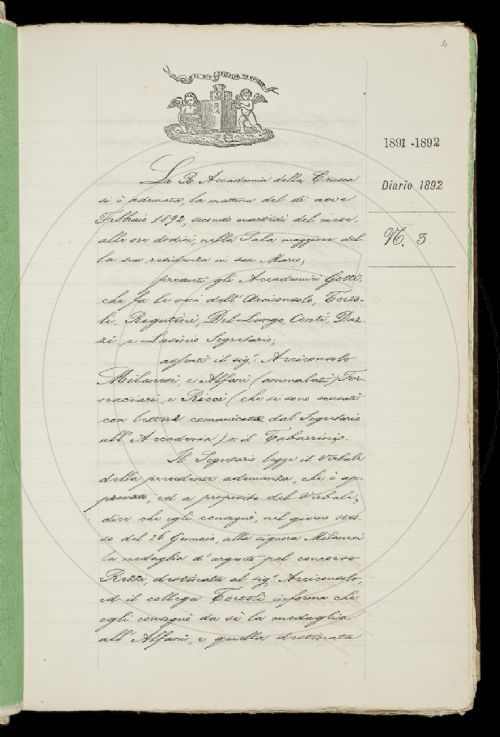 1891-1892
Diario 1892
N. 3
La R. Accademia della Crusca
si è adunata, la mattina del dì nove
Febbraio 1892, secondo martedì del mese,
alle ore dodici, nella Sala maggiore del
la sua residenza in San Marco;
presenti gli Accademici Gotti,
che fa le veci dell'Arciconsolo, Torto
li, Rigutini, Del Lungo, Conti, Daz
zi, e Lasinio Segretario;
assenti il sig. Arciconsolo
Milanesi, e Alfani (ammalati), For
nacciari e Ricci (che si sono scusati
con lettera comunicata dal Segretario
all'Accademia) e il Tabarrini.
Il Segretario legge il Verbale
della precedente adunanza, che è ap
provato, ed a proposito del Verbale,
dice che egli consegnò, nel giorno stes
so del 26 Gennaio, alla signora Milanesi
la medaglia d'argento pel concorso
Rezzi, destinata al sig. Arciconsolo,
ed il collega Tortoli informa che
egli consegnò da sè la medaglia
all'Alfani, e quella destinata